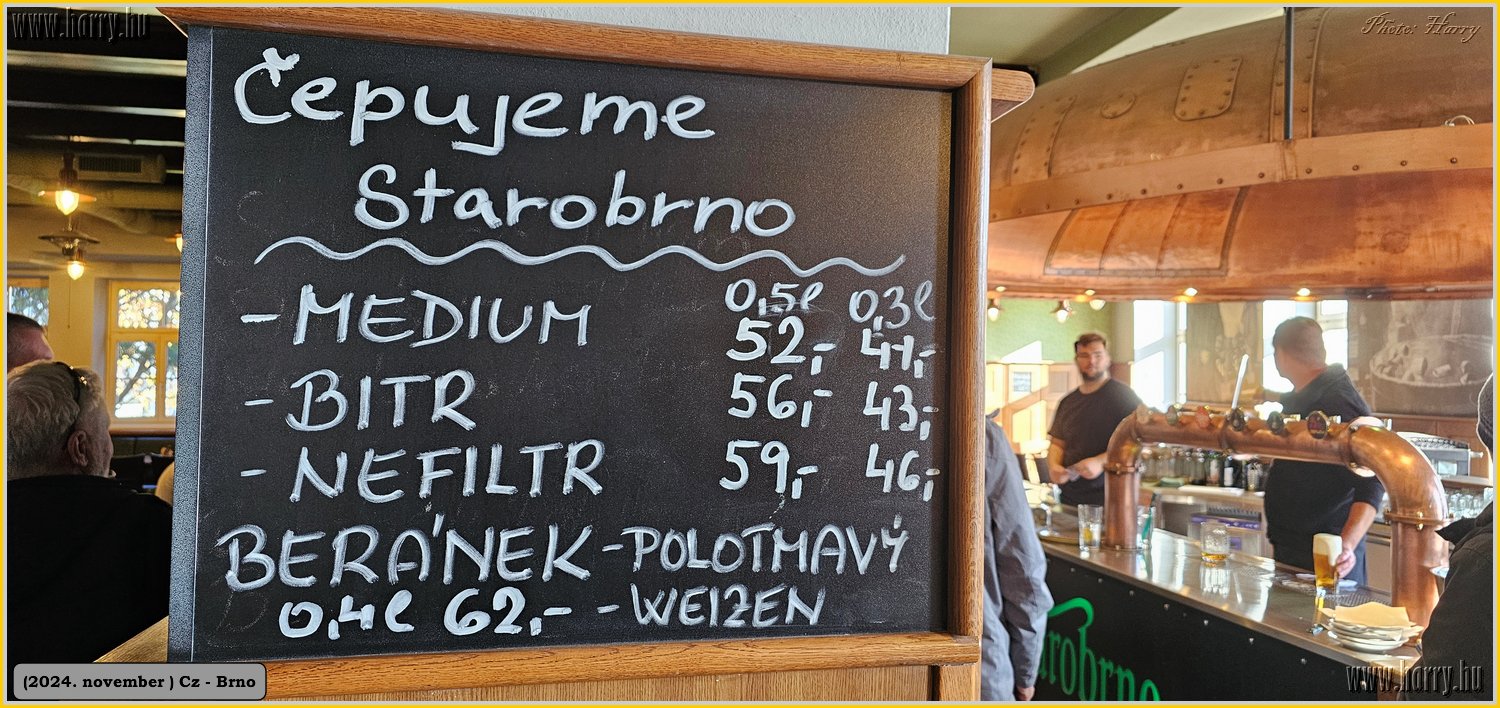 www.harry.hu
Photo: Harry
Čepujeme
Starobrno
0,5l 0,3l
- MEDIUM 52,- 41,-
- BITR 56,- 43,-
- NEFILTR 59,- 46,-
BERÁNEK - POLOTMAVÝ
0,4l 62,- - WEIZEN
arobrno
(2024. november ) Cz - Brno
www.harry.hu